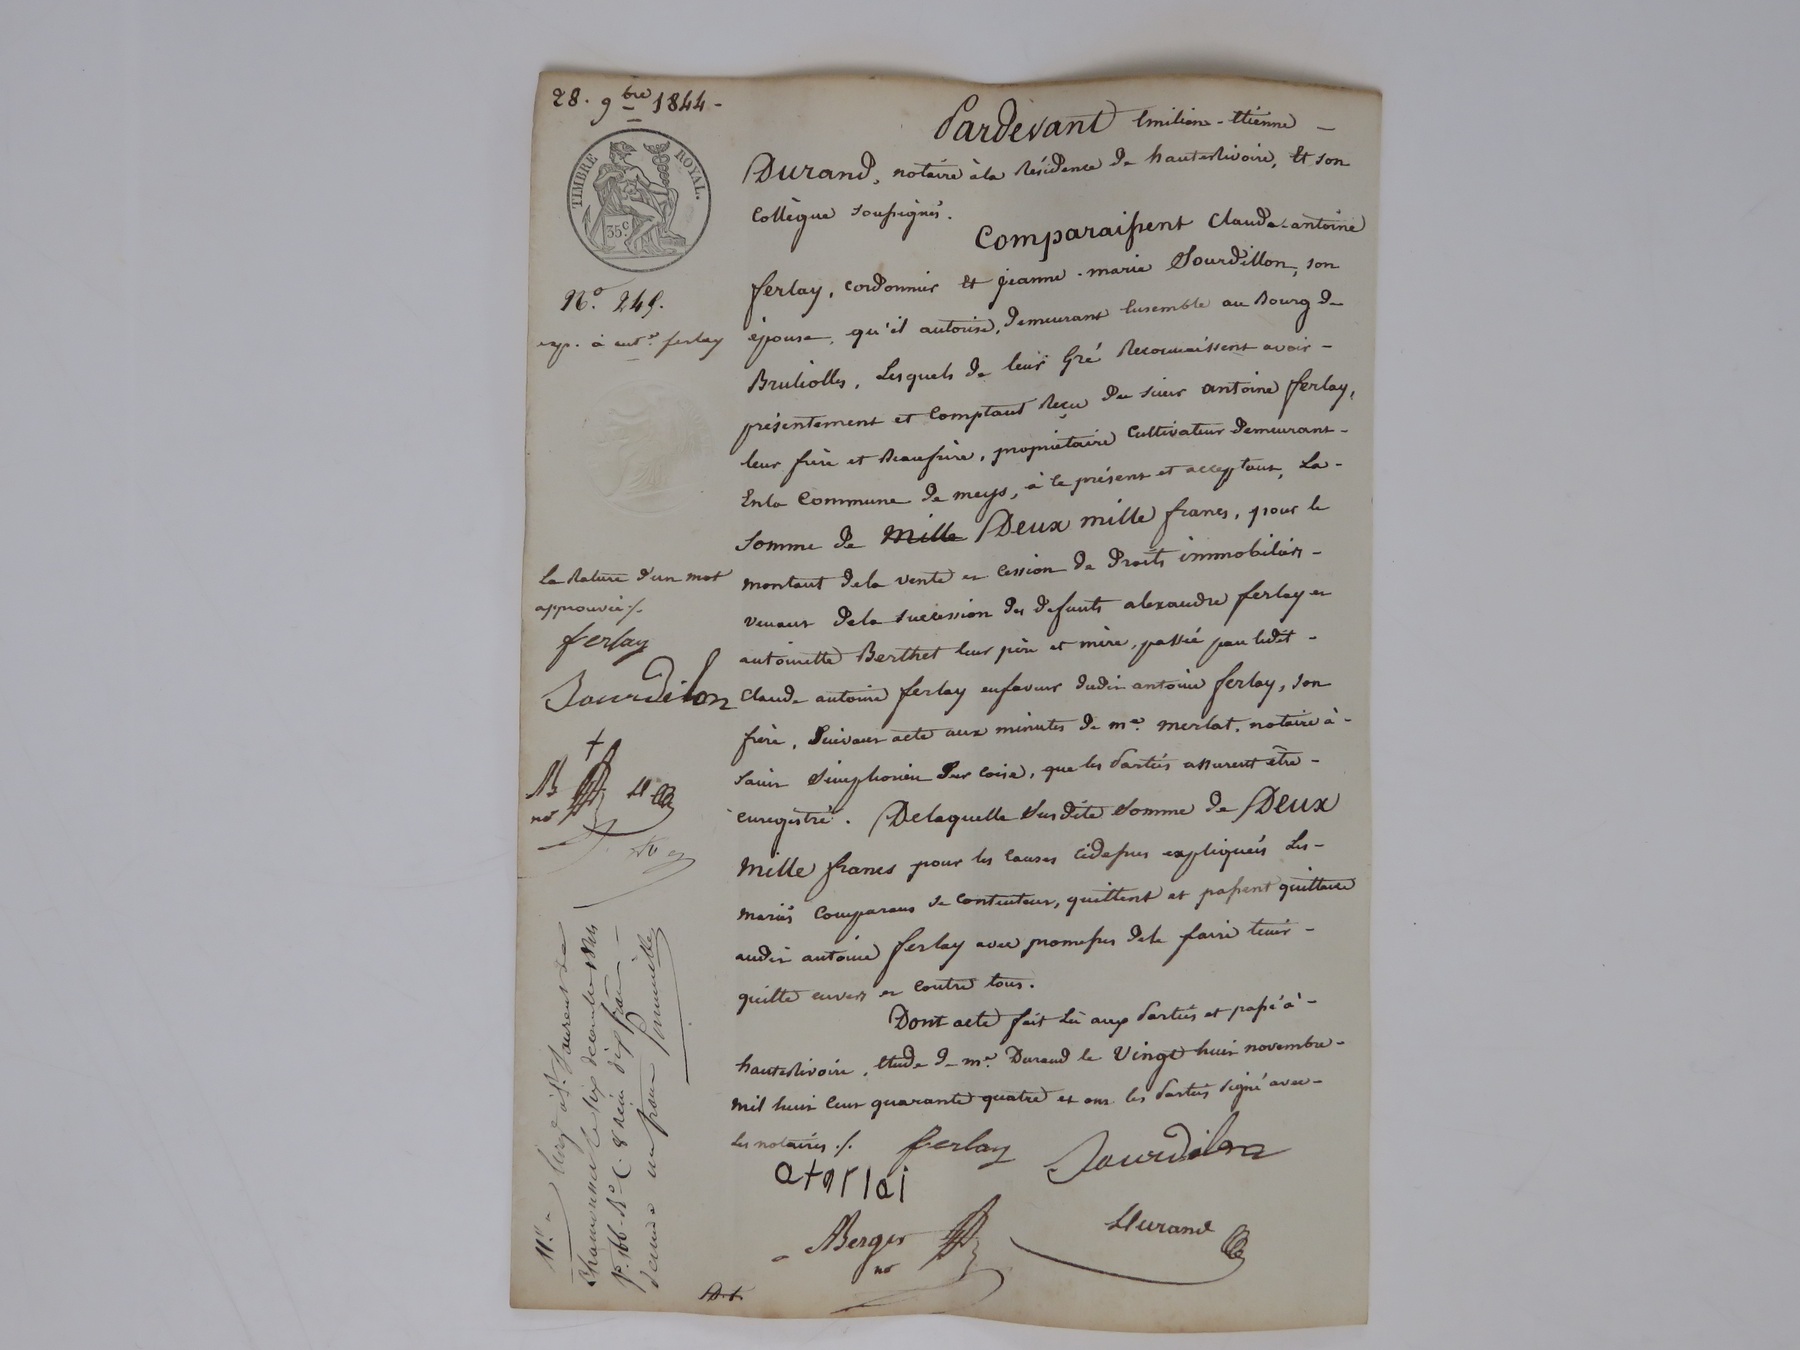 28. 9bre 1844-
TIMBRE ROYAL.
35c
No. 249.
exp. à ant.e ferlay
Pardevant Emilien-Etienne -
Durand, notaire à la Résidence de hauterivoire, Et son
Collègue soussignés.
Comparaissent Claude-antoine
ferlay, cordonnier Et jeanne-marie Sourdillon, son
épouse, qu'il autorise, demeurant Ensemble au Bourg de
Brulioles, Lesquels de leur Gré Reconnaissent avoir -
présentement et Comptant Reçu du sieur antoine ferlay,
leur frère et Beaufrère, propriétaire Cultivateur demeurant -
Enla Commune de meys, à ce présent et acceptant, La -
Somme de Mille Deux mille francs, pour le
montant dela vente et cession de Droits immobiliers -
venant dela succession des défunts alexandre ferlay et
antoinette Berthet leur père et mère, passée par ledit -
Claude antoine ferlay enfaveur dudit antoine ferlay, son
frère, Suivant acte aux minutes de me. merlat, notaire à -
Saint Simphorien Sur Coise, que les Parties assurent être -
enregistré. Delaquelle Susdite Somme de Deux
Mille francs pour les causes cidessus expliquées Les -
mariés Comparans se contentent, quittent et passent quittance
audit antoine ferlay avec promesses dele faire tenir -
quitte envers et contre tous.
Dont acte fait Lu aux Parties et passé à -
hauterivoire, Etude de me. Durand le Vingt huit novembre -
mil huit cent quarante quatre et ont les Parties signé avec -
Les notaires ./.
ferlay
Sourdilon
Berger
no
Durand
La Rature d'un mot
approuvée ./.
ferlay
Sourdilon
B
no
D
Enrgé à St. Laurent de
Chamousset le six décembre 1844
fo. 166 Ro C. 8 Reçu dix francs -